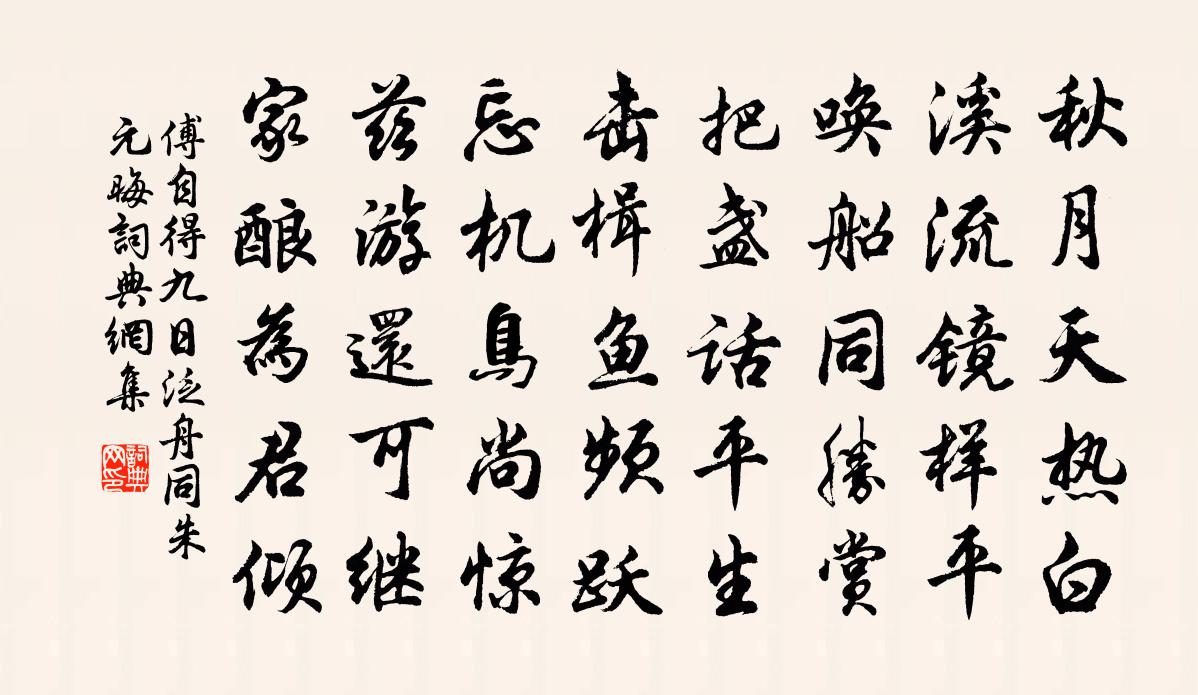 秋月天热白
溪流镜样平
唤船同勝赏
把盏话平生
击楫鱼频跃
忘机鳥尚惊
兹游還可继
家酿為君倾
傅自得九日泛舟同朱
元晦詞典網集
詞典
网印